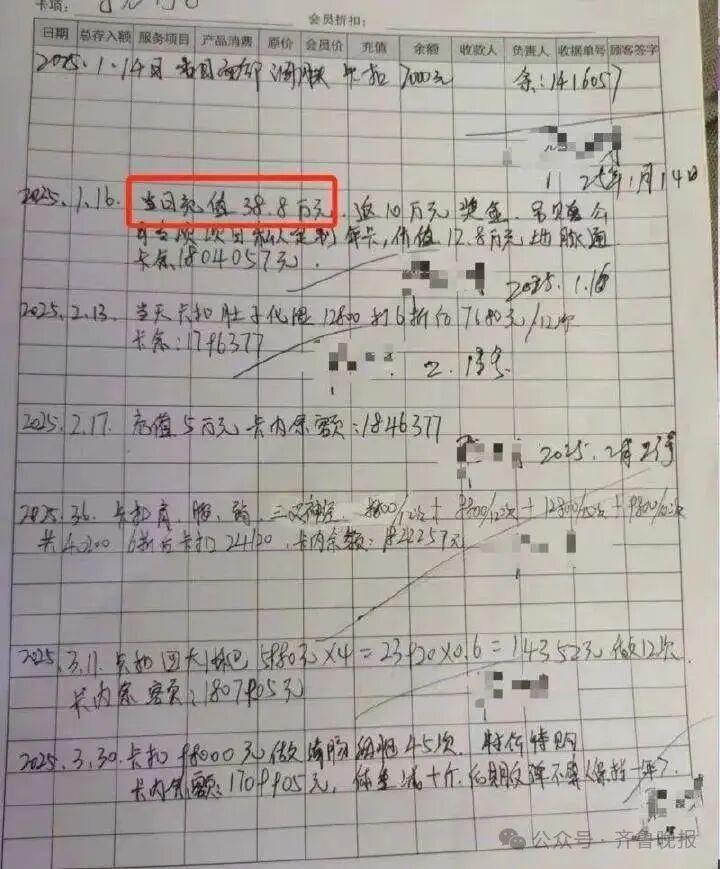 卡项:
会员折扣:
日期 总存入额 服务项目 产品消费 原价 会员价 充值 余额 收款人 负责人 收据单号 顾客签字
2025.1.14日 卡扣 7000元 余:1416057
25年1月14日
2025.1.16. 当日充值38.8万元.返10万元奖金.
年卡,价值12.8万元地脉通
卡余1804057元.
2025.1.16
2025.2.13. 当天卡扣肚子化湿12800打6折后7680元/12次
卡余:1796377
2.13号
2025.2.17. 充值5万元卡内余额:1846377
2025.2月23号
2025.3.6. 卡扣肩、腰、三叉神经. 9800/12次+12800/10次+9800/10次
共40200 6折后卡扣24120.卡内余额:1822257元
2025.3.11.卡扣四大淋巴5980元×4=23920×0.6=14352元做12次.
卡内余额:1807905元
2025.3.30.卡扣98000元做45次.特价特购
卡内余额:1709905元,体重减十斤.后期反弹不要,保持一年?
公众号·齐鲁晚报